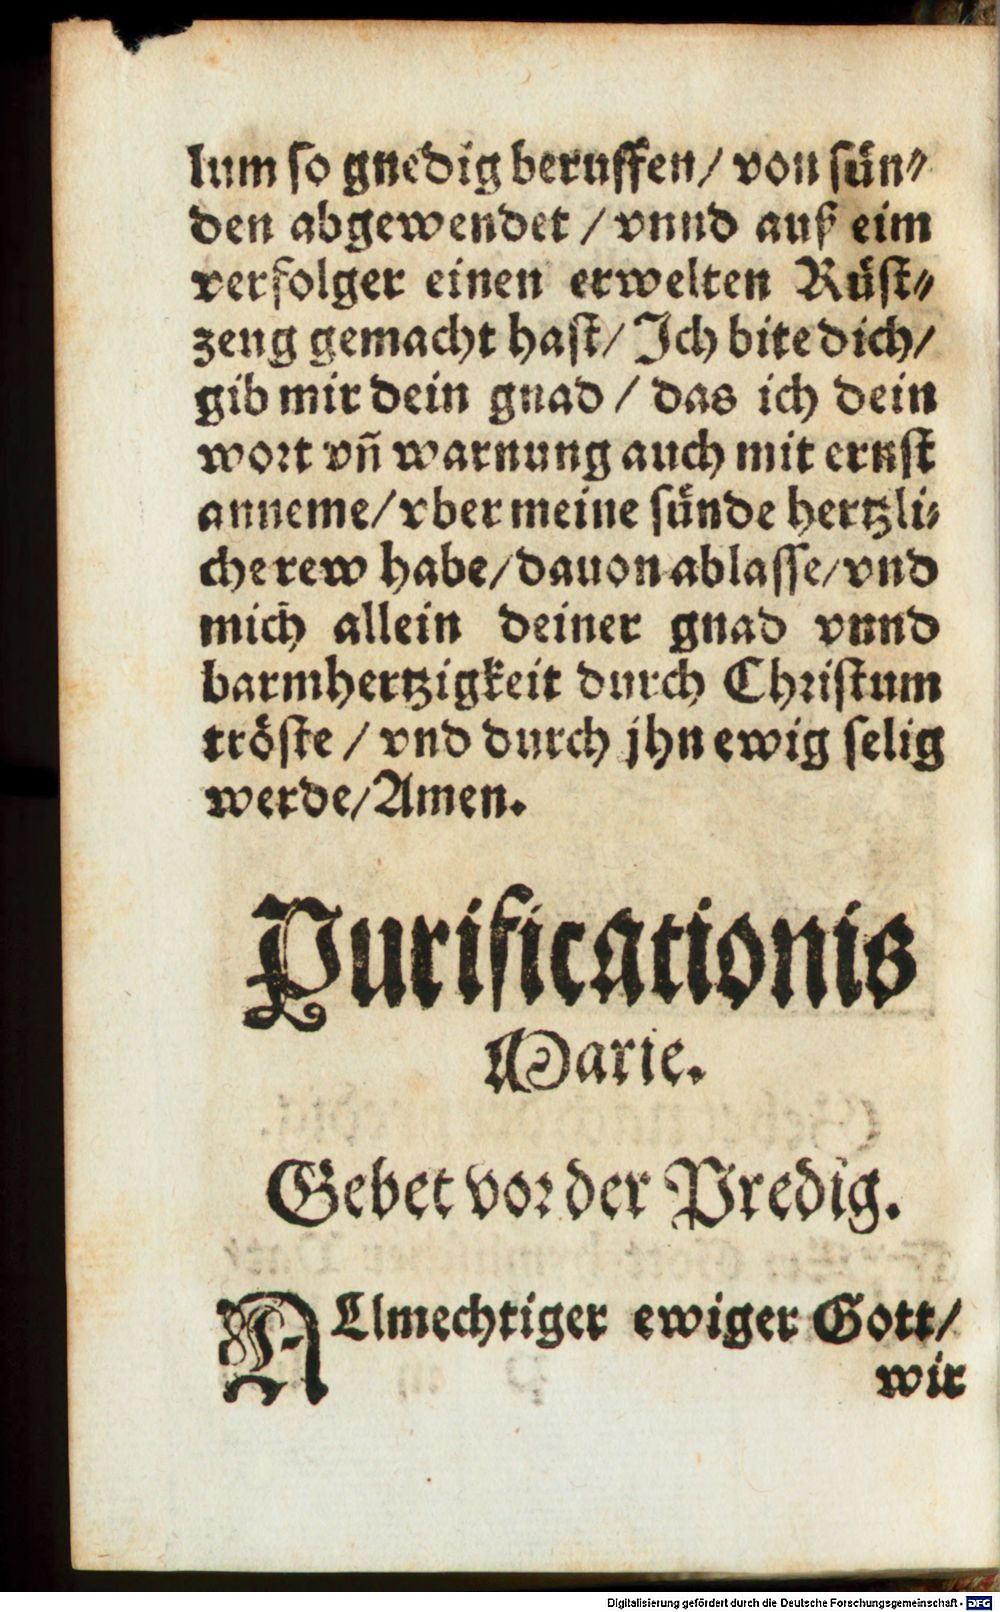 lum so gnedig beruffen/ von sün⸗
den abgewendet / vnnd auß eim
verfolger einen erwelten Rüst⸗
zeug gemacht hast/ Ich bite dich/
gib mir dein gnad / das ich dein
wort vñ warnung auch mit ernst
anneme/ vber meine sünde hertzli⸗
che rew habe/ dauon ablasse/ vnd
mich allein deiner gnad vnnd
barmhertzigkeit durch Christum
tröste / vnd durch jhn ewig selig
werde/ Amen.
Purificationis
Marie.
Gebet vor der Predig.
ALlmechtiger ewiger Gott/
wir
Digitalisierung gefördert durch die Deutsche Forschungsgemeinschaft - DFG